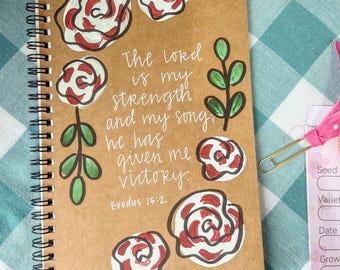 The Lord
is my
strength
and my song,
he has
given me
victory.
Exodus 15:2
Seed
Variet
Date
Grow